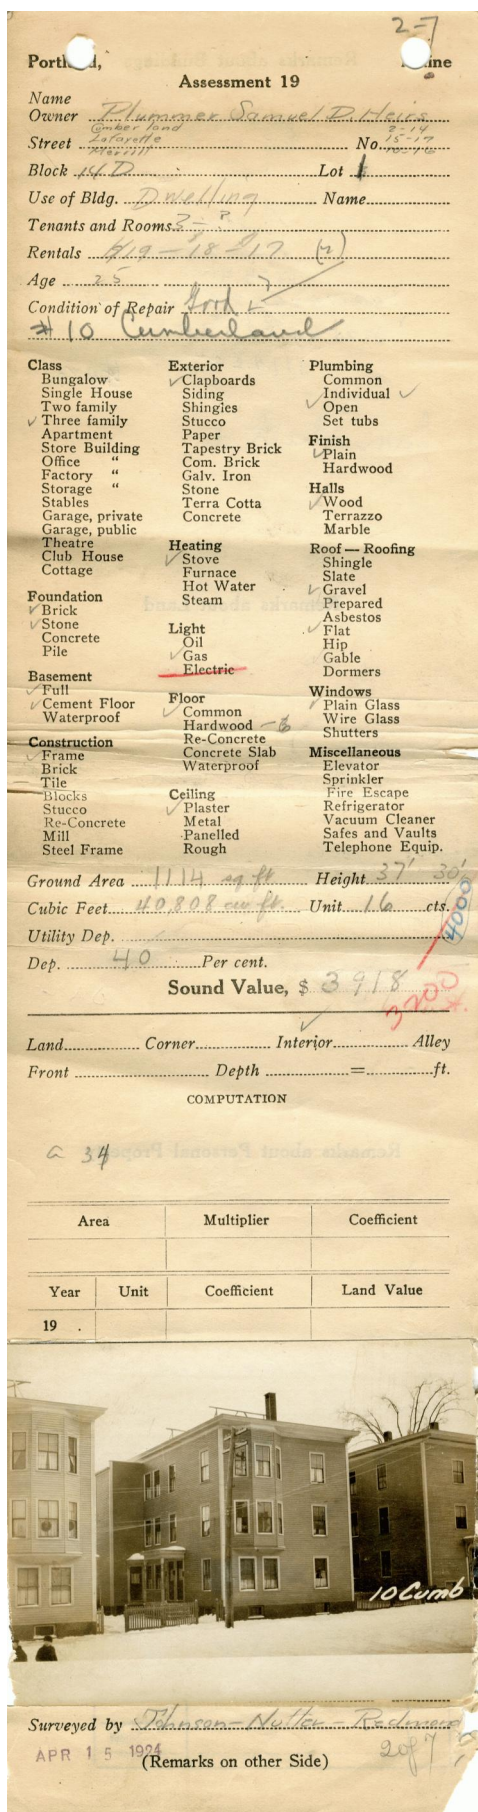 2-7
Portland, Maine
Assessment 19
Name
Owner Plummer Samuel D. Heirs
Cumberland 2-14
Street Lafayette No. 15-17
Merrill 10-16
Block 14 D Lot 1
Use of Bldg. Dwelling Name
Tenants and Rooms 3-
Rentals $19-18-$17
Age 25
Condition of Repair Good
# 10 Cumberland
Class
Bungalow
Single House
Two family
✓ Three family
Apartment
Store Building
Office "
Factory "
Storage "
Stables
Garage, private
Garage, public
Theatre
Club House
Cottage
Foundation
✓ Brick
✓ Stone
Concrete
Pile
Basement
✓ Full
✓ Cement Floor
Waterproof
Construction
✓ Frame
Brick
Tile
Blocks
Stucco
Re-Concrete
Mill
Steel Frame
Exterior
✓ Clapboards
Siding
Shingles
Stucco
Paper
Tapestry Brick
Com. Brick
Galv. Iron
Stone
Terra Cotta
Concrete
Heating
✓ Stove
Furnace
Hot Water
Steam
Light
Oil
✓ Gas
Electric
Floor
✓ Common
Hardwood - 6
Re-Concrete
Concrete Slab
Waterproof
Ceiling
✓ Plaster
Metal
Panelled
Rough
Plumbing
Common
Individual ✓
✓ Open
Set tubs
Finish
✓ Plain
Hardwood
Halls
✓ Wood
Terrazzo
Marble
Roof — Roofing
Shingle
Slate
✓ Gravel
Prepared
Asbestos
✓ Flat
Hip
Gable
Dormers
Windows
✓ Plain Glass
Wire Glass
Shutters
Miscellaneous
Elevator
Sprinkler
Fire Escape
Refrigerator
Vacuum Cleaner
Safes and Vaults
Telephone Equip.
Ground Area 1114 sq ft Height 37' 30'
Cubic Feet 40,808 cu ft. Unit 16 cts.
4000
Utility Dep.
Dep. 40 Per cent.
Sound Value, $ 3918
3200
Land Corner Interior ✓ Alley
Front Depth = ft.
COMPUTATION
a 34
Area Multiplier Coefficient
Year Unit Coefficient Land Value
19 .
10 Cumb
Surveyed by Johnson-Nutter-Redmond
APR 15 1924
2 of 7
(Remarks on other Side)